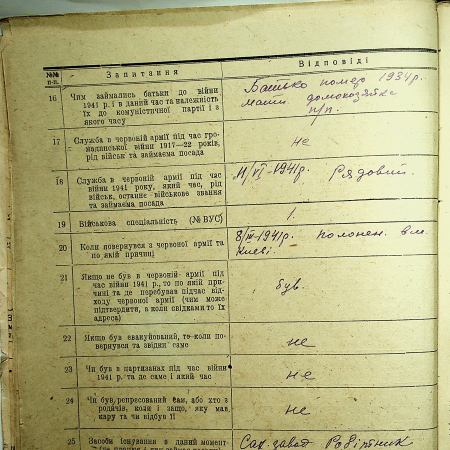 №№ п-п.
Запитання
Відповіді
16
Чим займались батьки до війни
1941 р. і в даний час та належність
їх до комуністичної партії і з
якого часу
Батько помер 1934 р.
мати домохозяйка
п/п.
17
Служба в червоній армії під час гро-
мадянської війни 1917—22 років,
рід військ та займаєма посада
не
18
Служба в червоній армії під час
війни 1941 року, який час, рід
військ, останнє військове звання
та займаєма посада
11/VI-1941р. Рядовий.
19
Військова спеціальність (№ ВУС)
1.
20
Коли повернувся з червоної армії та
по якій причині
1941р. полонен. в м.
Києві.
21
Якщо не був в червоній армії під
час війни 1941 р., то по якій при-
чині та де перебував підчас від-
ходу червоної армії (чим може
підтвердити, а коли свідками то їх
адреса)
був.
22
Якщо був евакуйований, то коли по-
вернувся та звідки саме
не
23
Чи був в партизанах під час війни
1941 р. та де саме і який час
не
24
Чи був репресований сам, або хто з
родичів, коли і защо, яку мав
кару та чи відбув її
не
25
Засоби існування в даний момент
Сах. завод Робітник